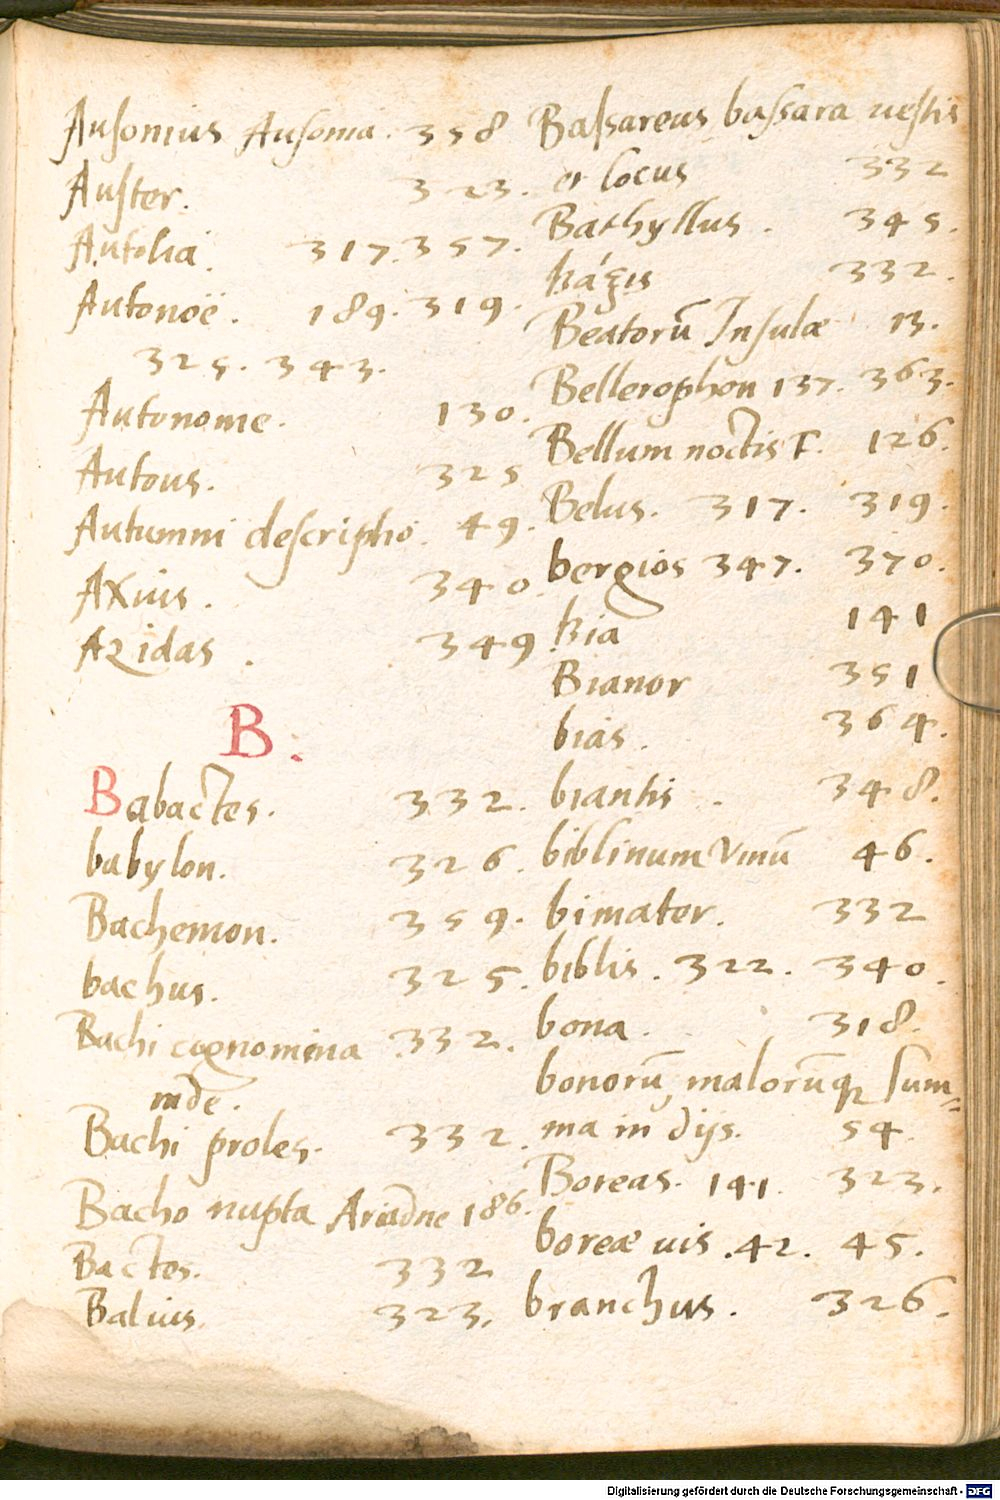 Ausonius Ausonia. 358
Auster. 323.
Autolia. 317. 357.
Autonoë. 189. 319.
325. 343.
Autonome. 130.
Autous. 325
Autumni descriptio. 49.
Axius. 340.
Azidas. 349.
B.
Babactes. 332.
babylon. 326.
Bachemon. 359.
bachus. 325.
Bachi cognomina 332.
inde.
Bachi proles. 332.
Bacho nupta Ariadne 186.
Bactes. 332
Balius. 323.
Bassareus bassara uestis
et locus 332
Bathyllus. 345.
βάξις 332.
Beatorū Insulæ 13.
Bellerophon 137. 363.
Bellum noctis T. 126.
Belus. 317. 319.
bergios 347. 370.
βία 141
Bianor 351
bias. 364.
biantis. 348.
biblinum vinū 46.
bimater. 332
biblis. 322. 340.
bona. 318.
bonorū, malorūq sum=
ma in dijs. 54.
Boreas. 141. 323.
boreæ uis. 42. 45.
branchus. 326.
Digitalisierung gefördert durch die Deutsche Forschungsgemeinschaft - DFG